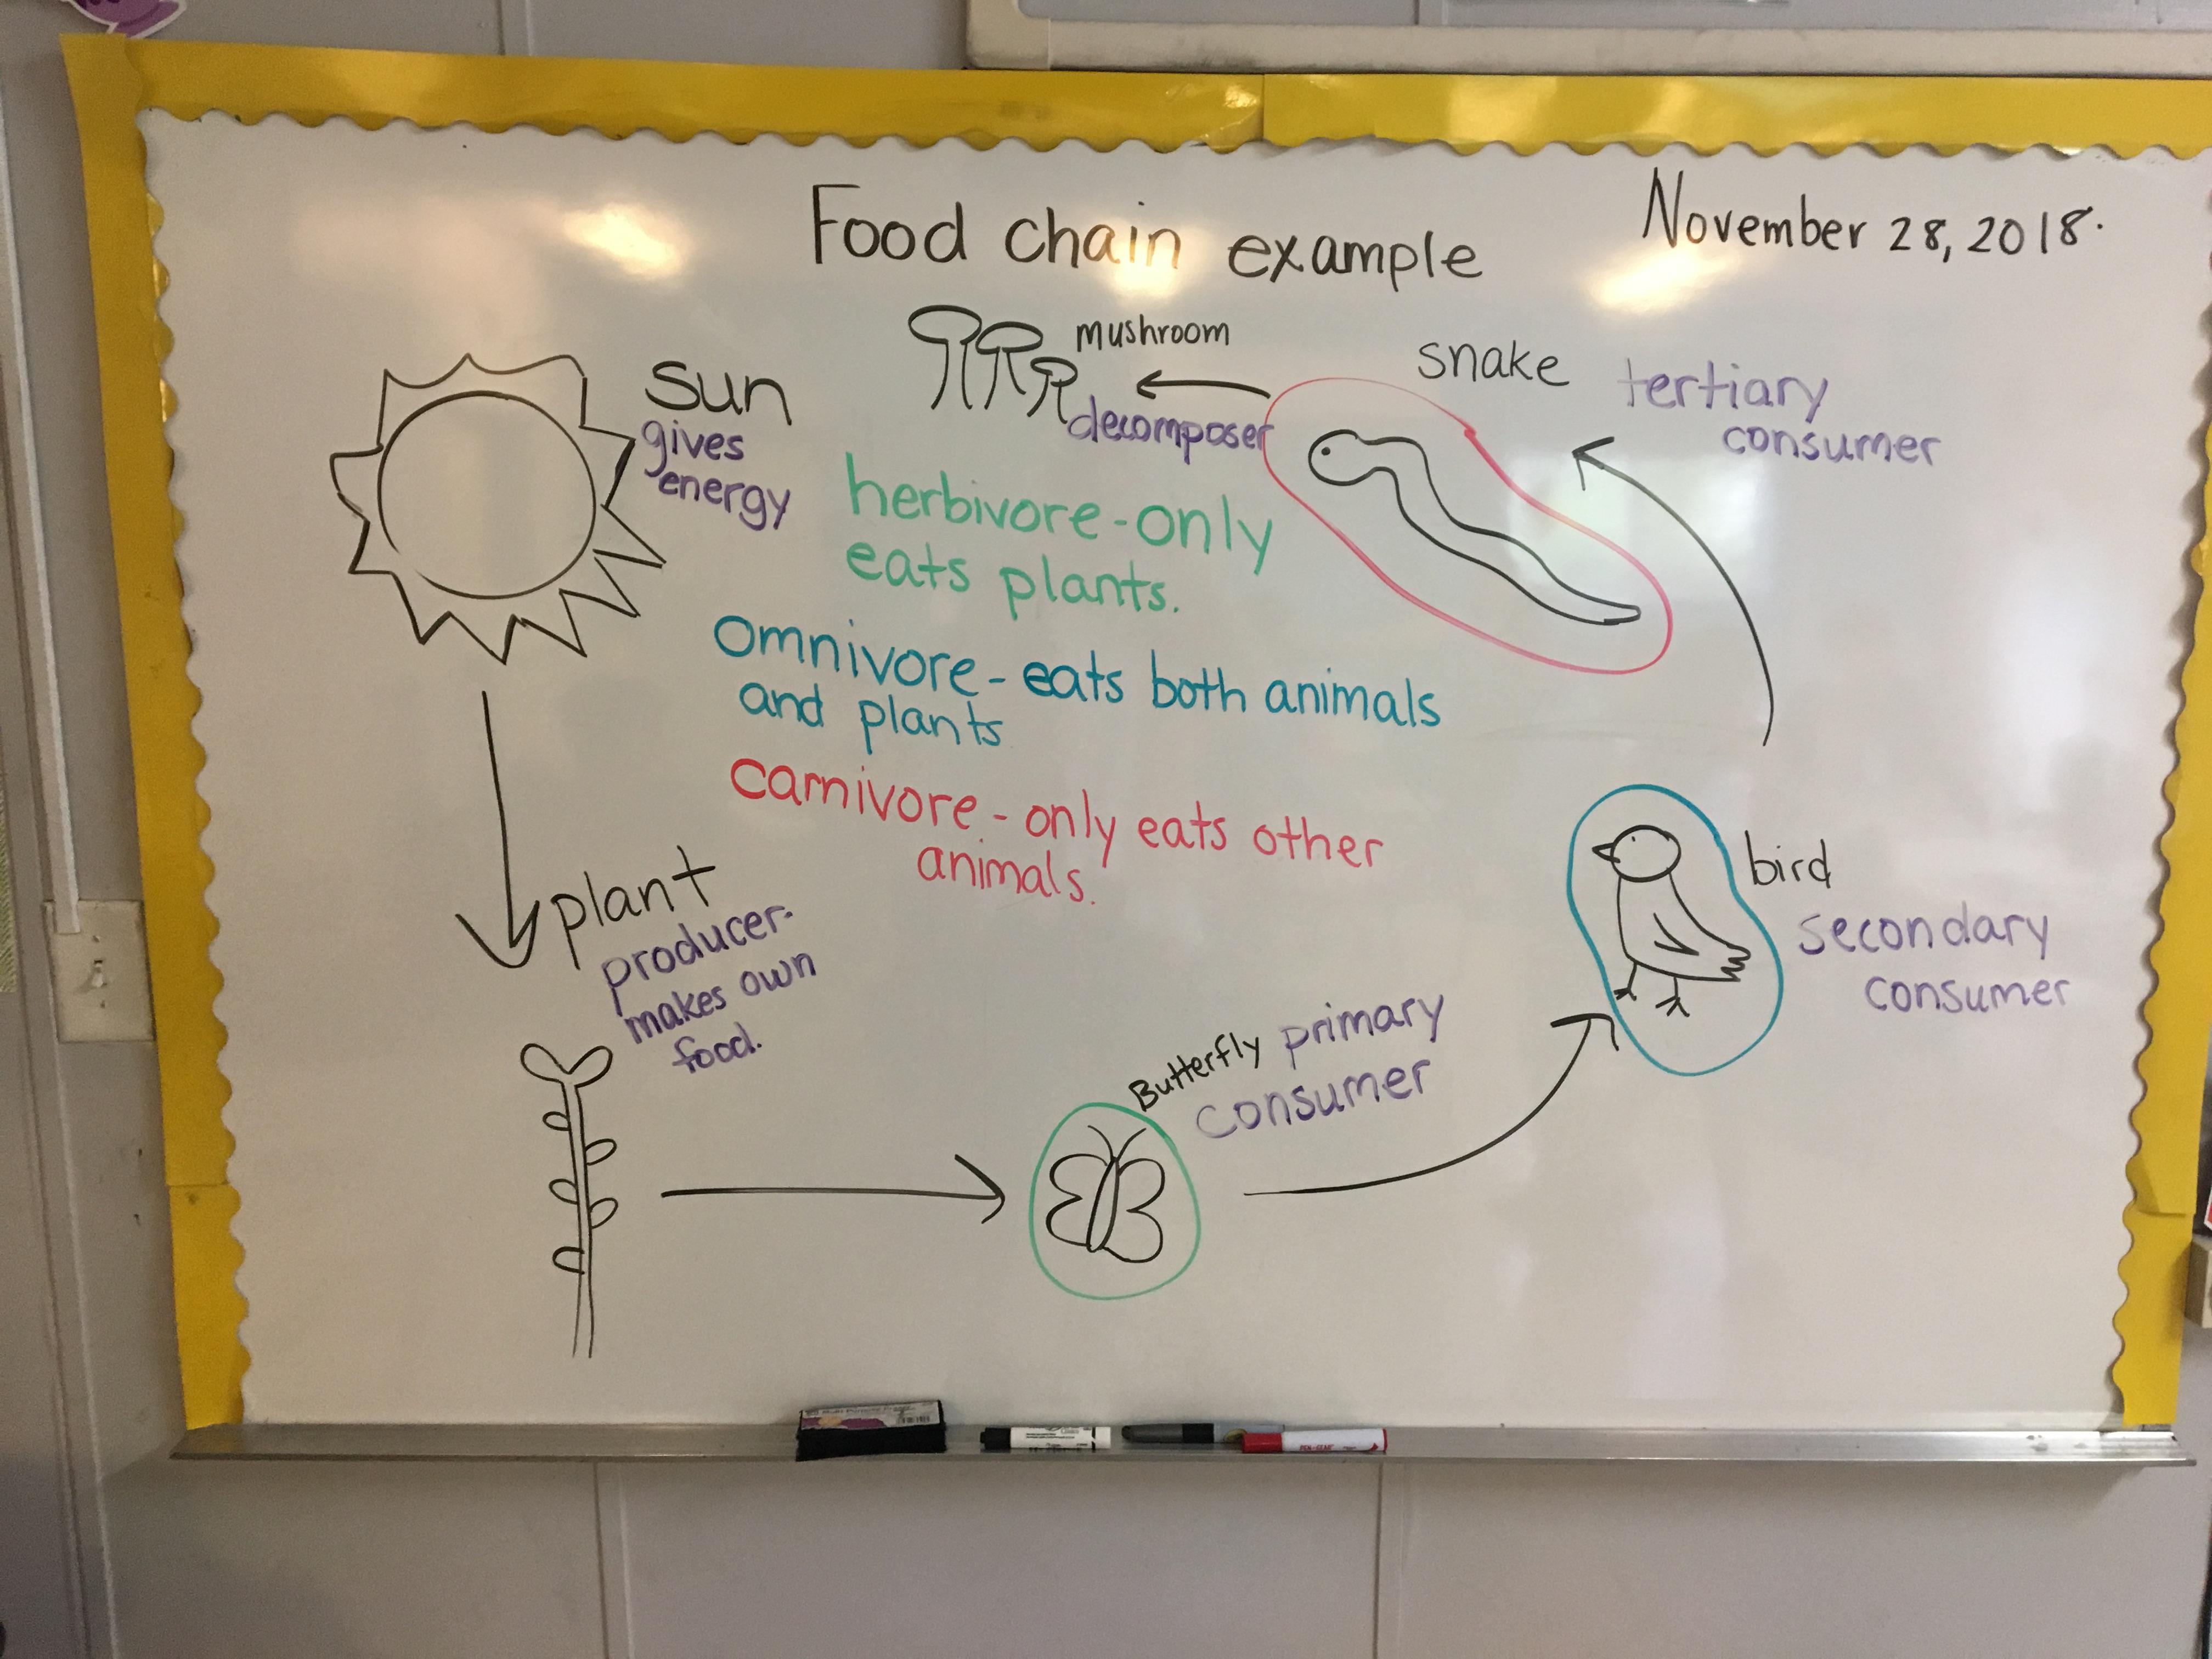 Food chain example
November 28, 2018.
mushroom
decomposer
snake
tertiary
consumer
sun
gives
energy
herbivore-only
eats plants.
omnivore-eats both animals
and plants
carnivore-only eats other
animals.
plant
producer-
makes own
food.
bird
secondary
consumer
Butterfly primary
consumer